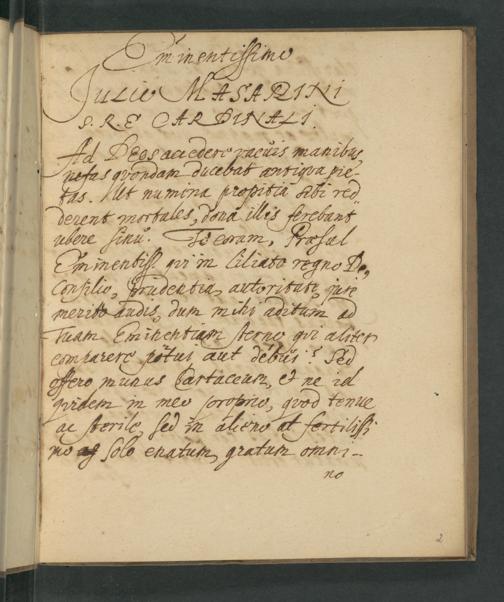 Eminentissimo
Julio MASARINI
S. R. E CARDINALI.
Ad Deos accedere vacuis manibus
nefas quondam ducebat antiqua pie-
tas. Ut numina propitia sibi red-
derent mortales, dona illis ferebant
ubere sinu. Te eoram, Præsul
Eminentiss. qui in Liliato regno De,
Consilio, Prudentia, autoritate, jure
merito audis, dum mihi aditum ad
Tuam Eminentiam sterno, qui aliter
comparere potui aut debui? Sed
offero munus Cartaceum, & ne id
quidem in meo proprio, quod tenue
ac sterile, sed in alieno at fertilissi
mo solo enatum, gratum omni-
no
2